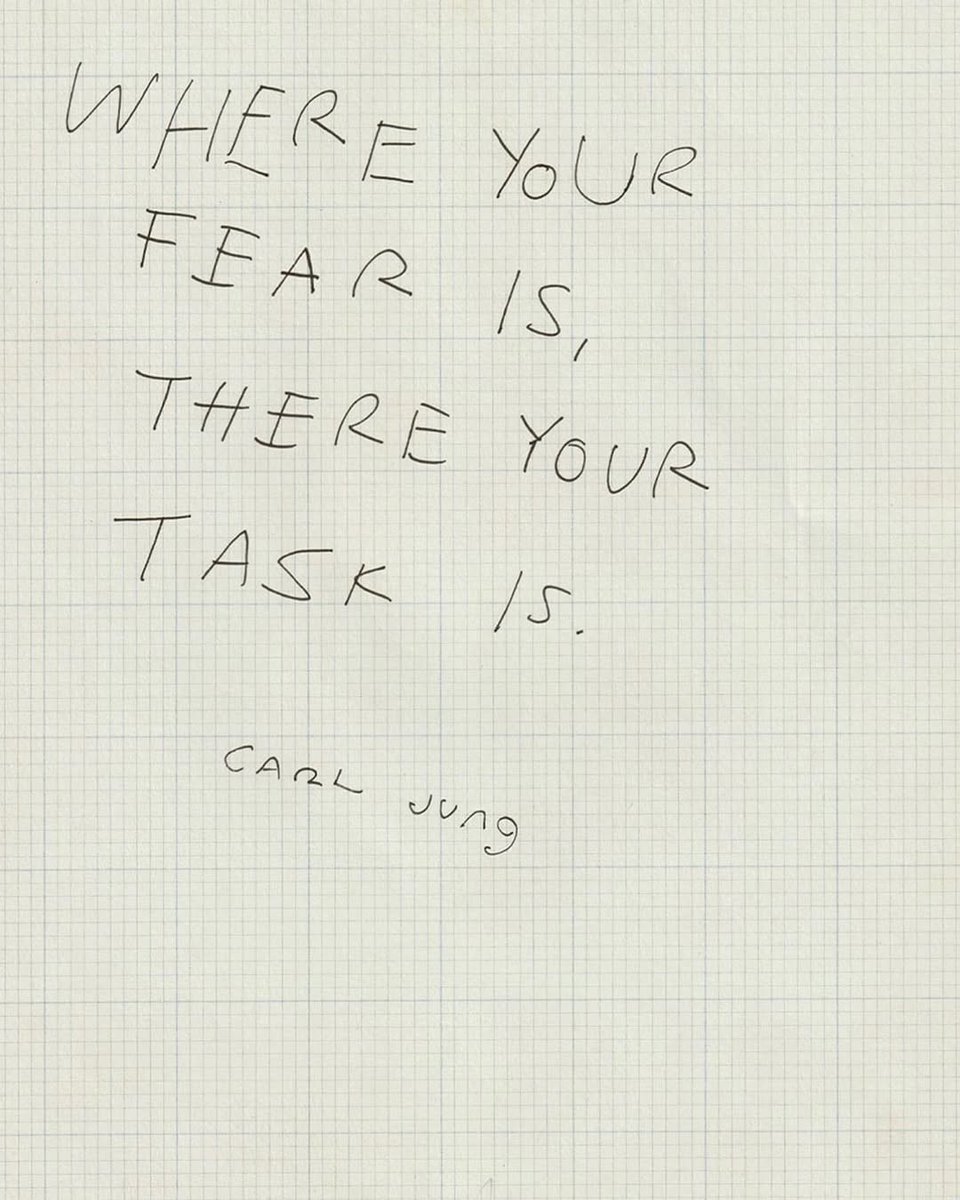 WHERE YOUR
FEAR IS,
THERE YOUR
TASK IS.
CARL JUNG